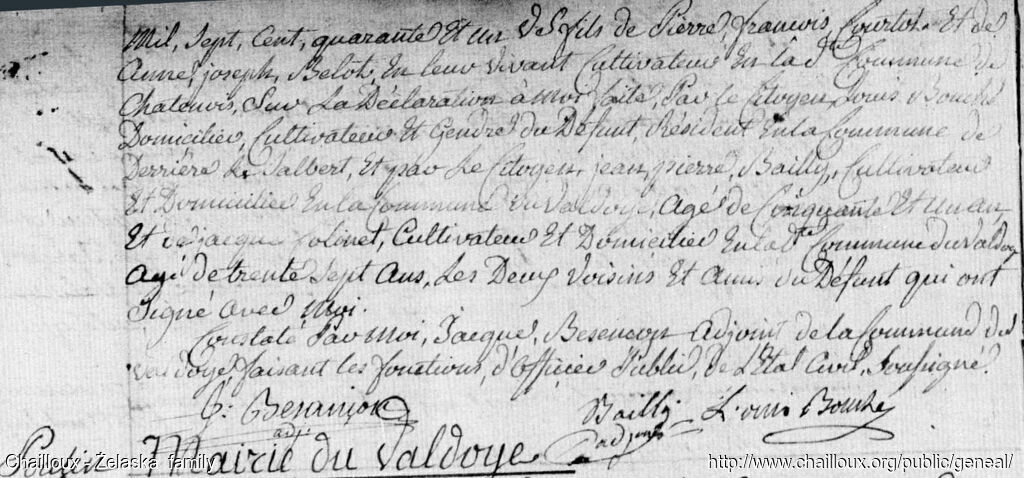 Mil, Sept, Cent, quarante Et un Ve fils de Pierre, francois Courtot Et de
Anne, joseph, Belot, En leur vivant Cultivateur En lad.te Commune de
Chalonvis, Sur La Déclaration à moi faite, Par le Citoyen, Louis Bouché
Domicilier, Cultivateur Et Gendre du Défunt, Résident En la Commune de
Derriere le Salbert, Et par Le Citoyen, jean pierre, Bailly, Cultivateur
Et Domicilie En la Commune du Valdoye, agé de Cinquante Et un an
Et de jacque Colinet, Cultivateur Et Domicilier En lad.te Commune du Valdoy
agé de trente Sept ans, Les Deux Voisins Et Amis du Défunt qui ont
Signé avec Moi.
Constaté Par moi, Jacque, Besencon adjoint de la Commune du
Valdoye, faisant les fonctions, d'Officier Public, de L'Etat Civil, Soussigné.
J: Besançon Bailly Louis Bouche
adj. adjoint
Mairie du Valdoye
Chailloux - Zelaska family http://www.chailloux.org/public/geneal/